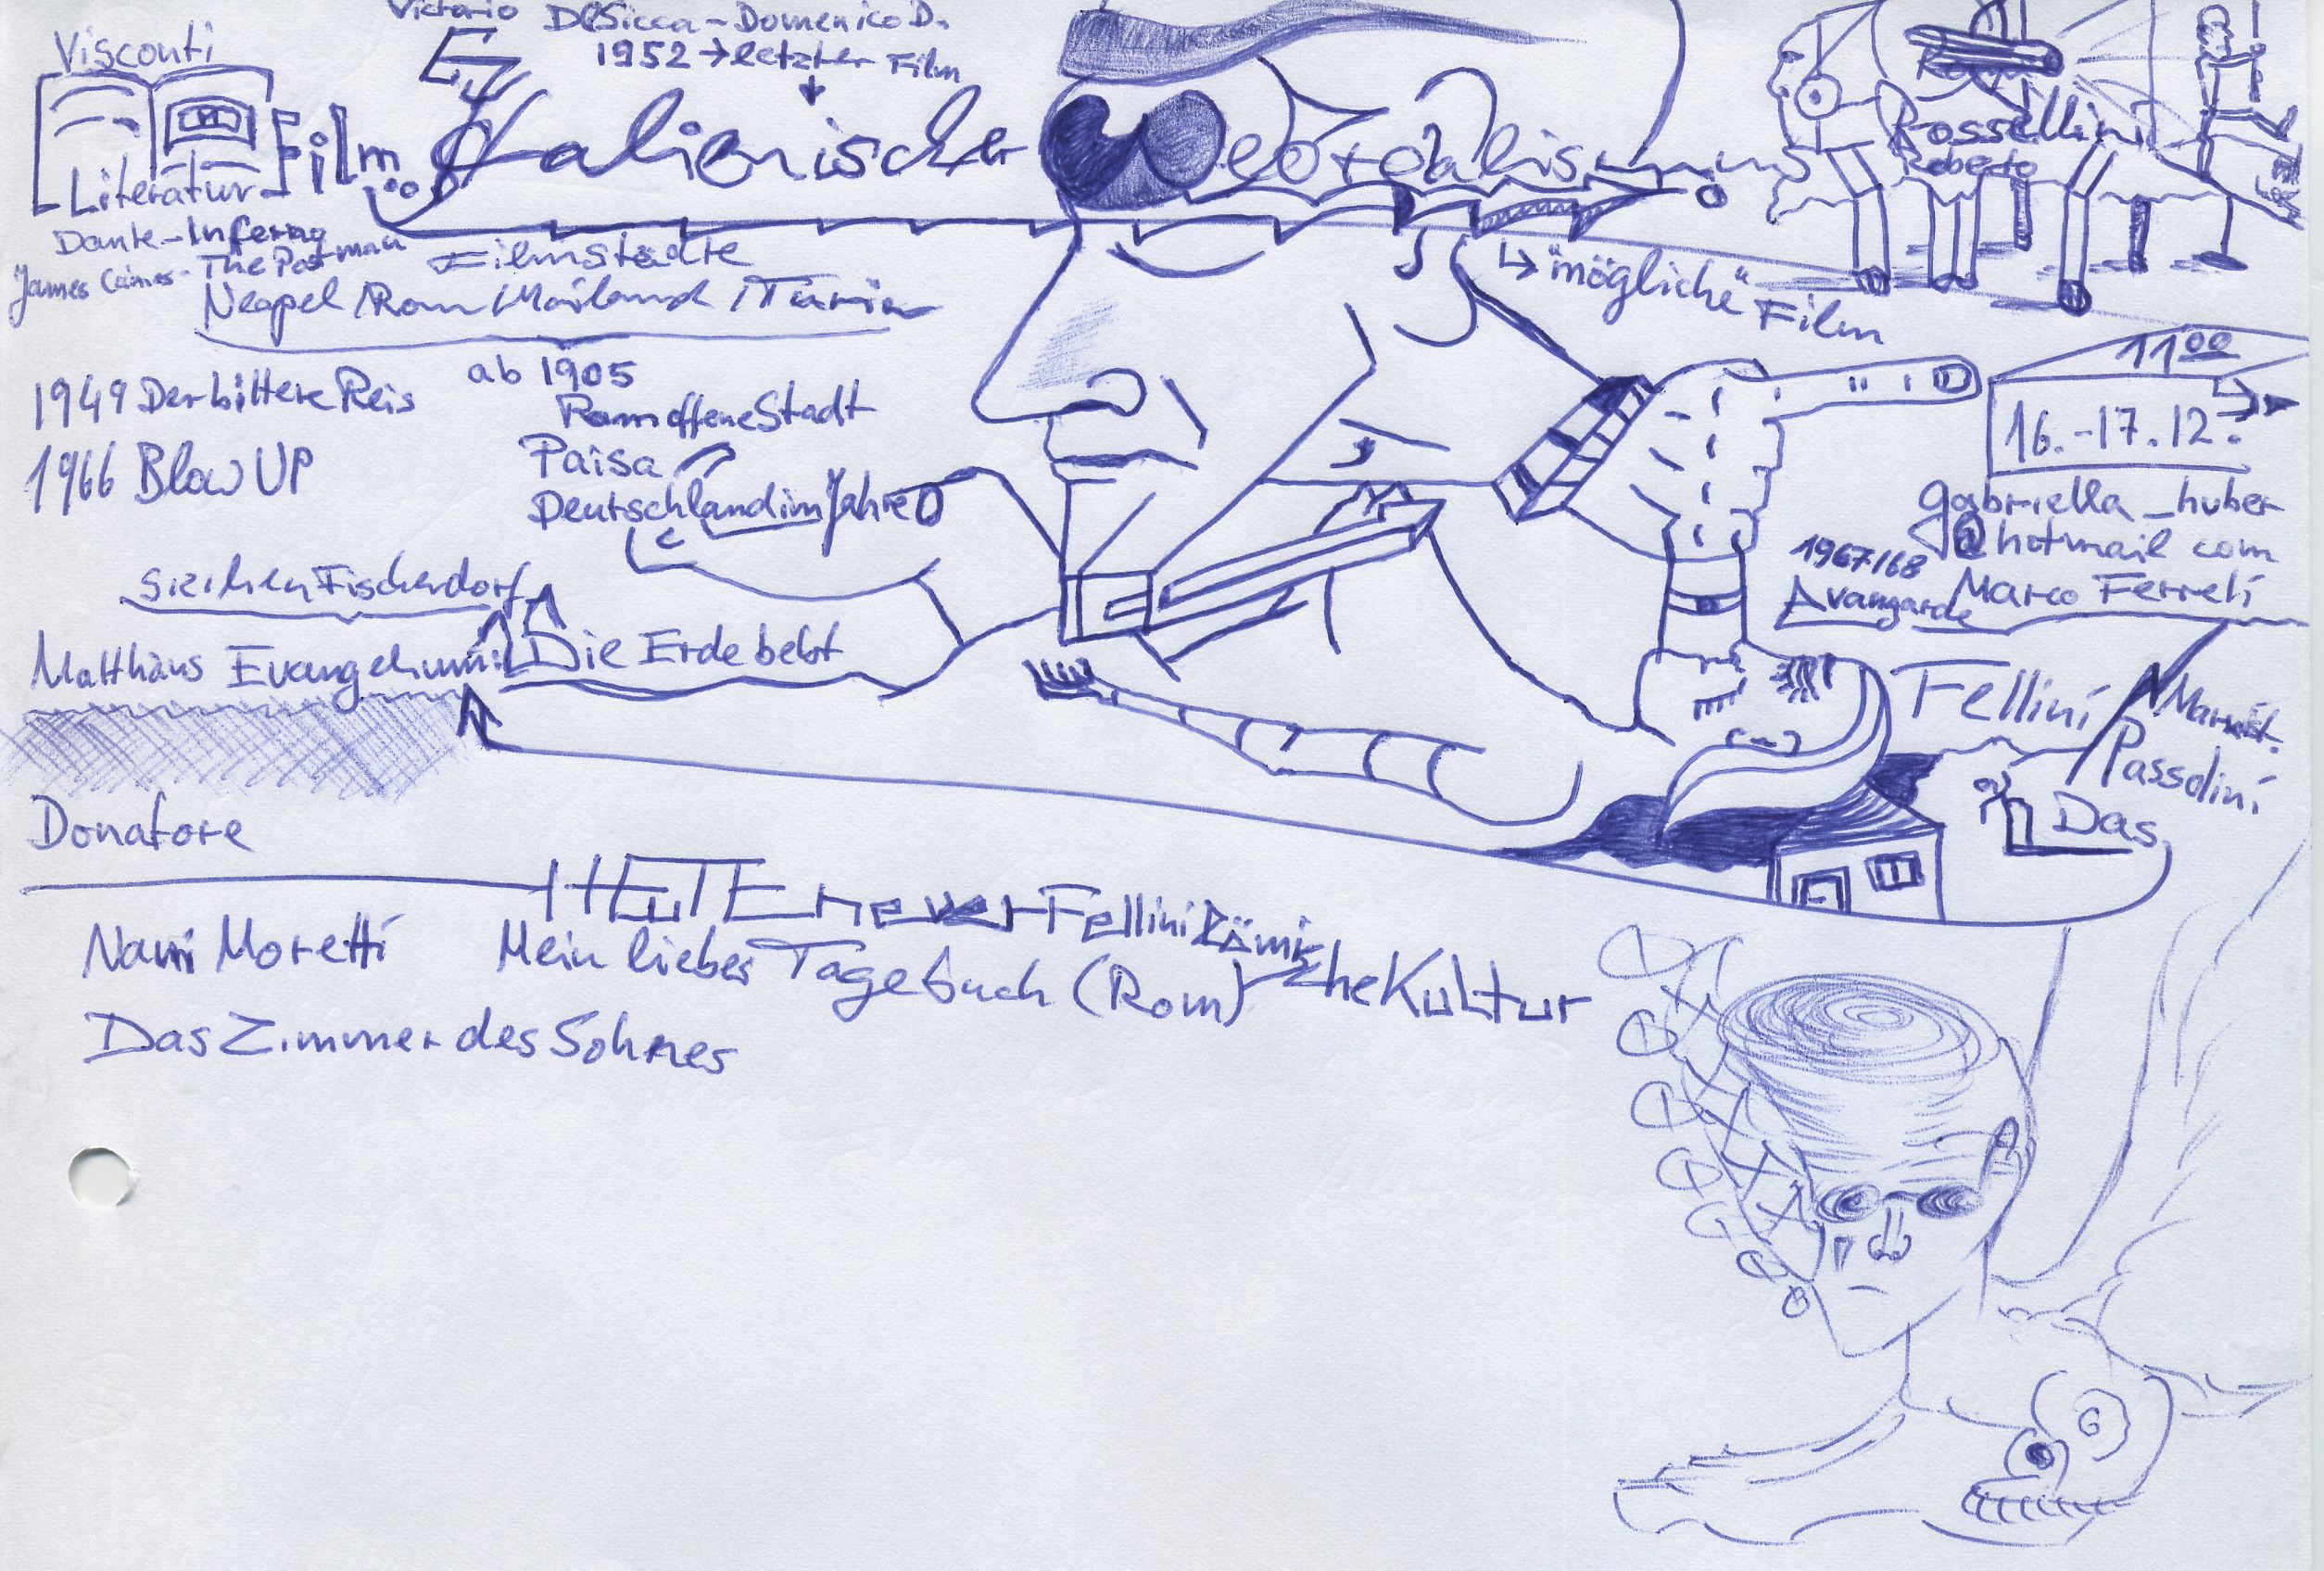 Visconti
Victorio DeSicca-Domenico D.
1952 → letzter Film
Film
Literatur
Italienischer Neorealismus
Rossellini
Roberto
Dante-Inferno
James Caimes- The Postman
Filmstädte
Neapel/Rom/Mailand/Turin
↳ "mögliche" Film
ab 1905
1100
16.-17.12.
1949 Der bittere Reis
Rom offene Stadt
1966 Blow UP
Paisa
Deutschland im Jahre 0
gabriella_huber
@hotmail com
1967/68
Avangarde
Marco Ferreti
sizilien Fischerdorf
Matthäus Evangelium
Die Erde bebt
Fellini
Marxist.
Passolini
Das
Donatore
HEUTE neuer Fellini Römische Kultur
Nanni Moretti
Mein liebes Tagebuch (Rom)
Das Zimmer des Sohnes